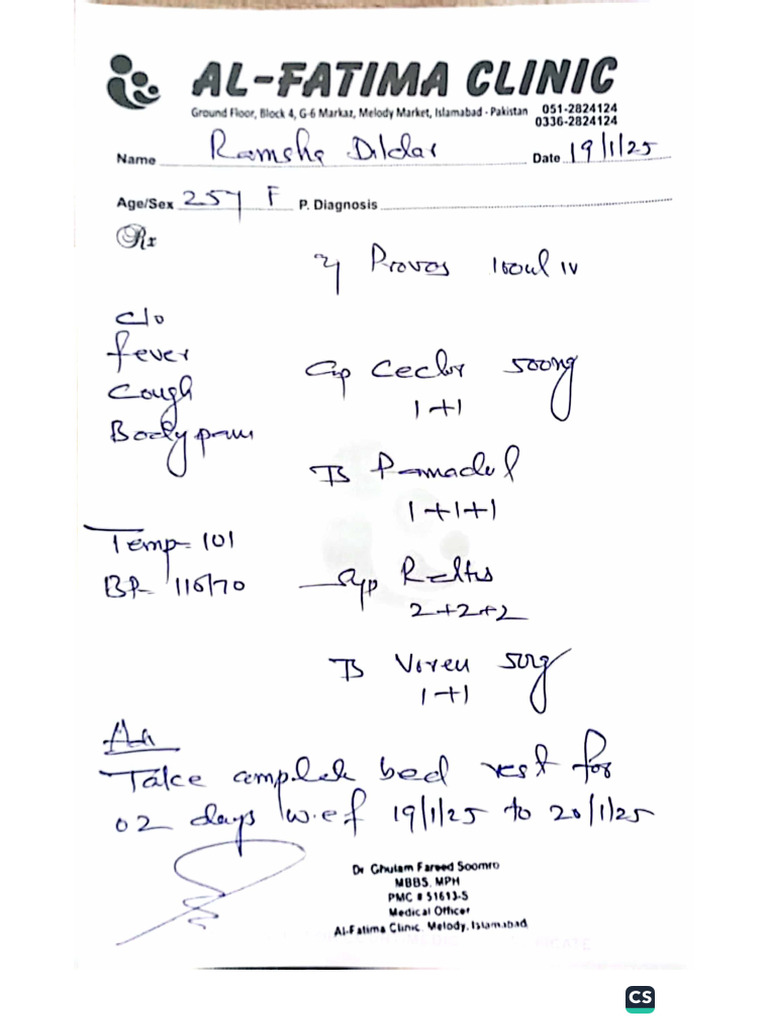 AL-FATIMA CLINIC
Ground Floor, Block 4, G-6 Markaz, Melody Market, Islamabad - Pakistan 051-2824124
0336-2824124
Name Ramsha Dildar Date 19/1/25
Age/Sex 25y F P. Diagnosis
Rx
Provas IV
C/o
fever
Cough
Body pain
Cap Ceclor 500mg
1+1
Tb Panadol
1+1+1
Temp- 101
BP- 116/70
Syp
2+2+2
Tb Voren 50mg
1+1
Take complete bed rest for
02 days w.e.f 19/1/25 to 20/1/25
Dr Ghulam Fareed Soomro
MBBS, MPH
PMC # 51613-S
Medical Officer
Al-Fatima Clinic, Melody, Islamabad
CS